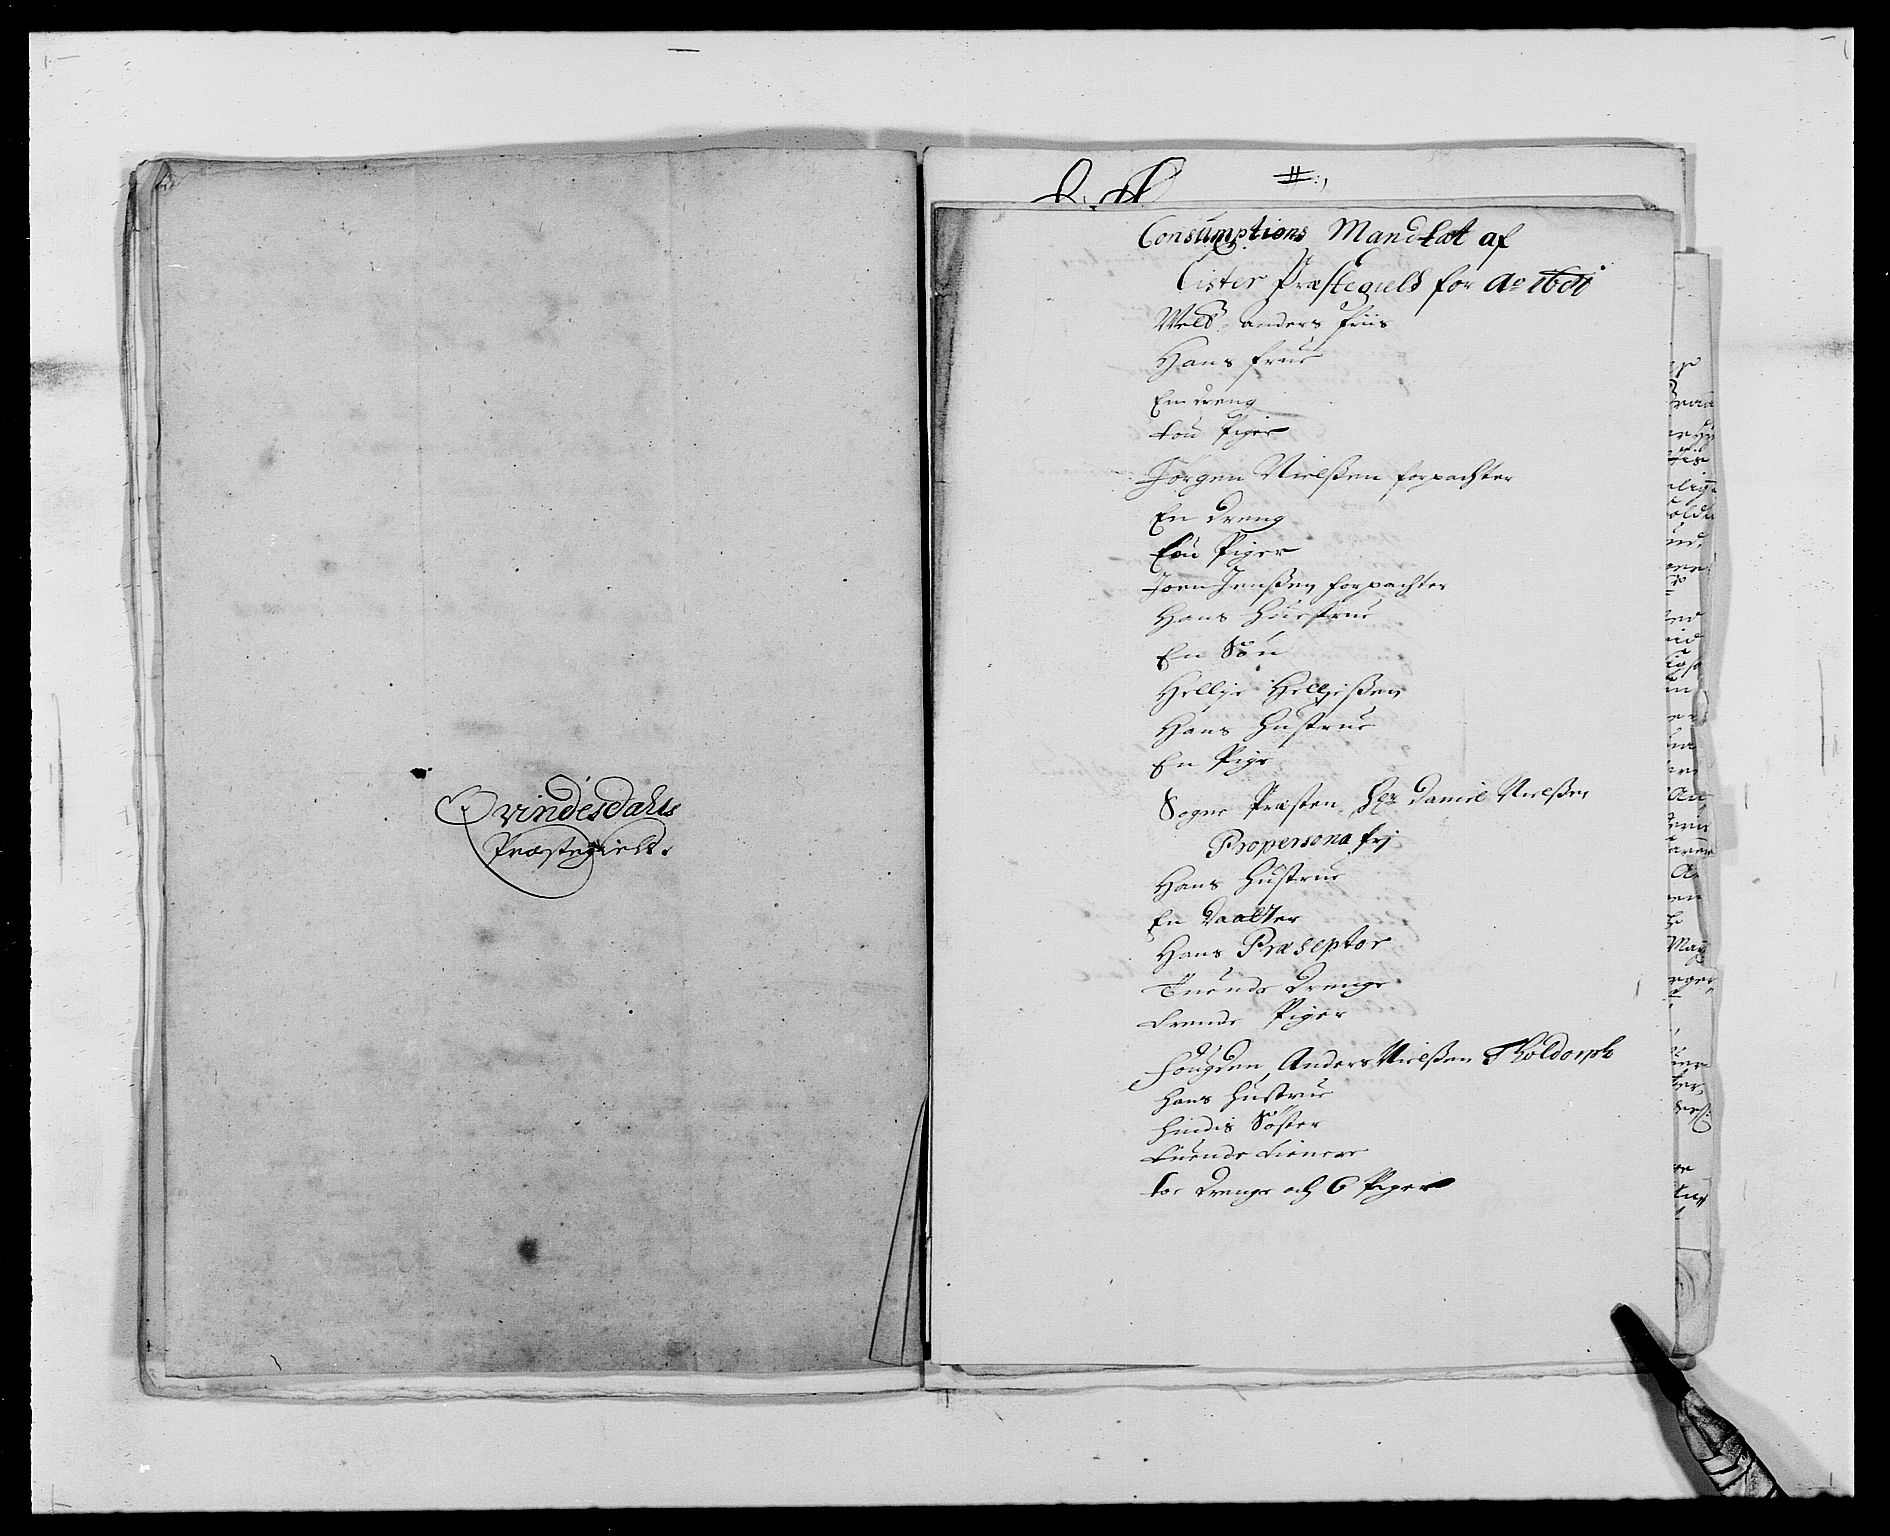 Qvindesdahls
Præstegield.
Consumptions Mandtat af
Lister Præstegield for Ao
Welb: anders friis
Hans frue
Em dreng
tou Piger
Jørgen Nielßen forpachter
En dreng
tou Piger
Joen Jenßen forpachter
Hans Huestrue
En Søn
Hellje Helljeßen
Hans Hustrue
En Pige
Sogne Præsten Hr Daniel Nielßen
Propersona frj
Hans Hustrue
En Daatter
Hans Præseptor
Tuende Drenge
trende Piger
fougden Anders Nielßen Tholdorph
Hans Hustrue
Hindis Søster
tuende tienere
toe Drenge och 6 Piger